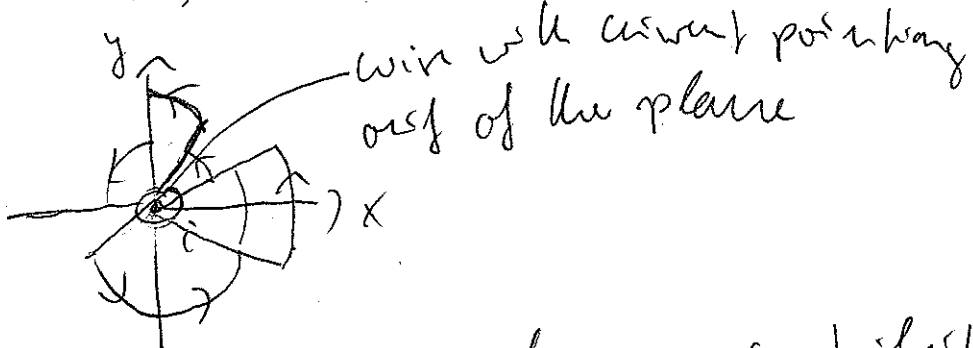 y
wire with current pointing
out of the plane
x
i